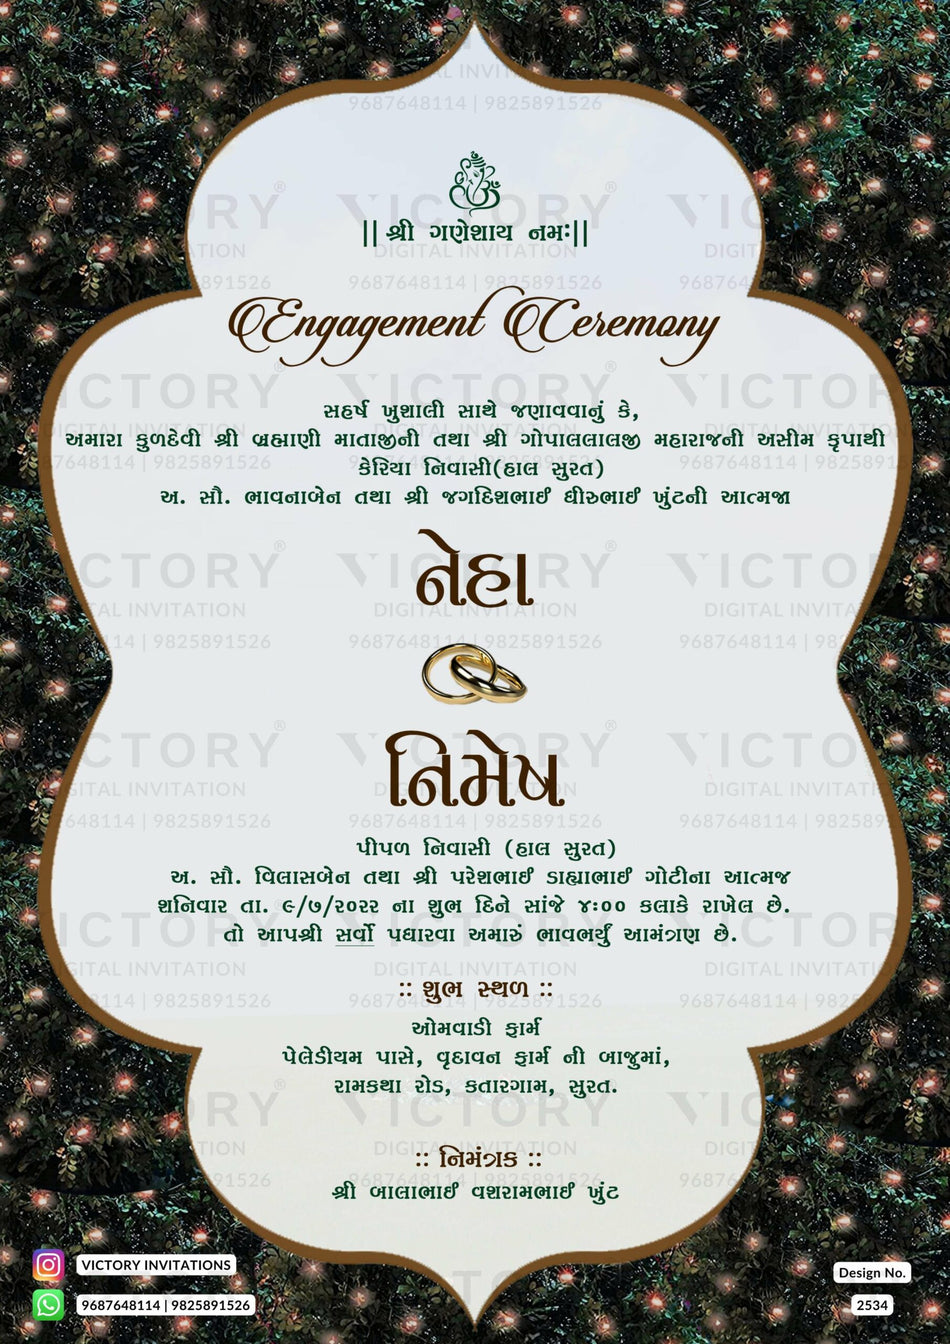 || શ્રી ગણેશાય નમઃ||
Engagement Ceremony
સહર્ષ ખુશાલી સાથે જણાવવાનું કે,
અમારા કુળદેવી શ્રી બ્રહ્માણી માતાજીની તથા શ્રી ગોપાલલાલજી મહારાજની અસીમ કૃપાથી
કેરિયા નિવાસી(હાલ સુરત)
અ. સૌ. ભાવનાબેન તથા શ્રી જગદિશભાઈ ધીરુભાઈ ખુંટની આત્મજા
નેહા
નિમેષ
પીપળ નિવાસી (હાલ સુરત)
અ. સૌ. વિલાસબેન તથા શ્રી પરેશભાઈ ડાહ્યાભાઈ ગોટીના આત્મજ
શનિવાર તા. ૯/૭/૨૦૨૨ ના શુભ દિને સાંજે ૪:૦૦ કલાકે રાખેલ છે.
તો આપશ્રી સર્વો પધારવા અમારું ભાવભર્યું આમંત્રણ છે.
:: શુભ સ્થળ ::
ઓમવાડી ફાર્મ
પેલેડીયમ પાસે, વૃદાવન ફાર્મ ની બાજુમાં,
રામકથા રોડ, કતારગામ, સુરત.
:: નિમંત્રક ::
શ્રી બાલાભાઈ વશરામભાઈ ખુંટ
VICTORY INVITATIONS
9687648114 | 9825891526
Design No.
2534
VICTORY®
DIGITAL INVITATION
9687648114 | 9825891526